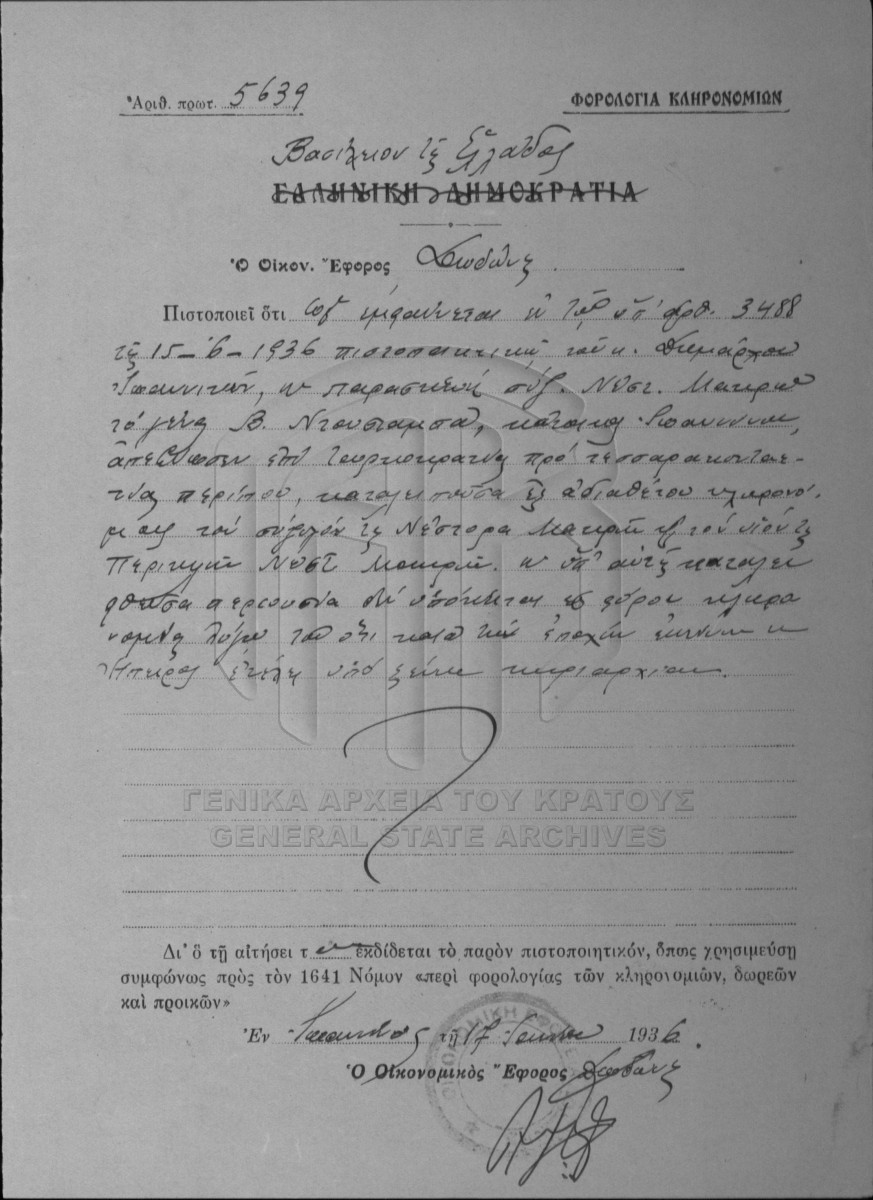 Ἀριθ. πρωτ. 5639
ΦΟΡΟΛΟΓΙΑ ΚΛΗΡΟΝΟΜΙΩΝ
Βασίλειον τῆς Ἑλλάδος
ΕΛΛΗΝΙΚΗ ΔΗΜΟΚΡΑΤΙΑ
Ὁ Οἰκον. Ἔφορος Δωδώνης
Πιστοποιεῖ ὅτι ὡς ἐμφαίνεται ἐκ τοῦ ὑπ' ἀριθ. 3488
τῆς 15-6-1936 πιστοποιητικοῦ τοῦ κ. Δημάρχου
Ἰωαννιτῶν, ἡ Παρασκευή συζ. Νέστ. Μακρῆ
τό γένος Β. Ντουσταμσα, κάτοικος Ἰωαννίνων,
ἀπεβίωσεν ἐπί Τουρκοκρατίας πρό τεσσαρακοντα-
ετίας περίπου, καταλειποῦσα ἐξ ἀδιαθέτου κληρονό-
μους τόν σύζυγόν της Νέστορα Μακρῆν καί τόν υἱόν της
Περικλῆν Νεστ. Μακρῆν. ἡ ὑπ' αὐτῆς καταλει
φθεῖσα περιουσία δέν ὑπόκειται εἰς φόρον κληρο
νομίας λόγῳ τοῦ ὅτι κατά τήν ἐποχήν ἐκείνην ἡ
Ἤπειρος ἐτέλει ὑπό ξένην κυριαρχίαν.
ΓΕΝΙΚΑ ΑΡΧΕΙΑ ΤΟΥ ΚΡΑΤΟΥΣ
GENERAL STATE ARCHIVES
Δι' ὅ τῇ αἰτήσει τ ἐκδίδεται τὸ παρὸν πιστοποιητικόν, ὅπως χρησιμεύσῃ
συμφώνως πρὸς τὸν 1641 Νόμον «περὶ φορολογίας τῶν κληρονομιῶν, δωρεῶν
καὶ προικῶν»
Ἐν Ἰωαννίνοις τῇ 17 Ἰουνίου 1936.
Ὁ Οἰκονομικὸς Ἔφορος Δωδώνης